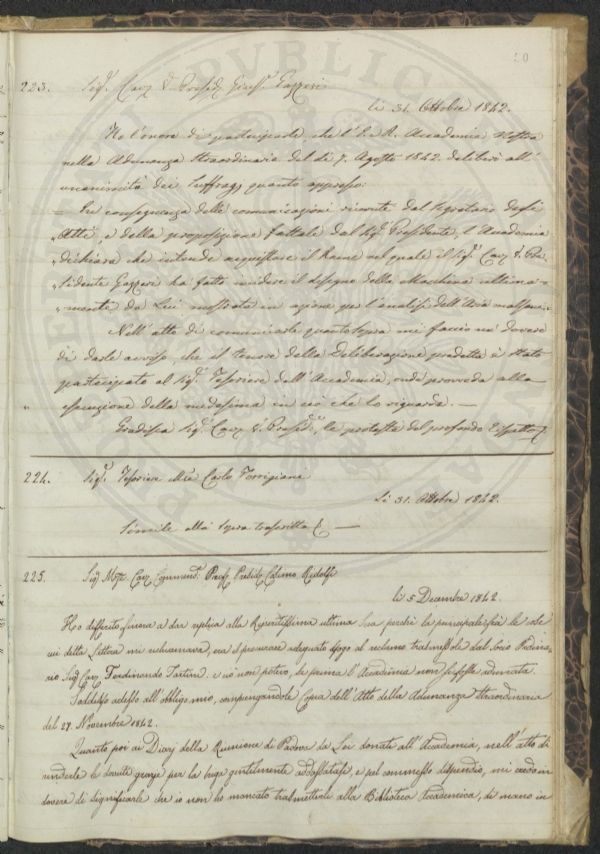 50
223. Sig.r Cav.e V. Presid.e Gius.e Gazzeri
li 31. Ottobre 1842.
Ho l'onore di parteciparle che l'I. e R. Accademia Nostra
nella Adunanza Straordinaria del dì 7. Agosto 1842. deliberò all'
unanimità dei suffragj quanto appresso:
In conseguenza delle comunicazioni ricevute dal Segretario degli
Atti, e della proposizione fattale dal Sig.r Presidente, l'Accademia
dichiara che intende acquistare il Rame nel quale il Sig.r Cav.e V. Pre-
sidente Gazzeri ha fatto incidere il disegno della Macchina ultima-
mente da Lui mostrata in azione per l'analisi dell'Aria
Nell'atto di comunicarle quanto sopra mi faccio un dovere
di darle avviso, che il tenore della Deliberazione predetta è stato
partecipato al Sig.r Tesoriere dell'Accademia, onde provveda alla
esecuzione della medesima in ciò che lo riguarda. —
Gradisca Sig.r Cav.e V. Presid.e, le proteste del profondo rispetto
224. Sig.r Tesoriere Carlo Torrigiani
Li 31. Ottobre 1842.
Simile alla sopra trascritta
225. Sig.r March. Cav. Commend. Prof. Presid.e Cosimo Ridolfi
li 5 Decembre 1842.
Ho differito finora a dar replica alla Rispettissima ultima Sua perchè la principale fra le cose
cui della Lettera mi richiamava, era il procurare adeguato sfogo al reclamo trasmessole dal Socio Ordina-
rio Sig.r Cav. Ferdinando Tartini. e ciò non poteva, se prima l'Accademia non si fosse adunata.
Soddisfo adesso all'obbligo mio, compiegandole Copia dell'Atto della Adunanza Straordinaria
del 27. Novembre 1842.
Quanto poi ai Diarj della Riunione di Padova da Lei donati all'Accademia, nell'atto di
renderle le dovute grazie per la briga gentilmente addossatasi, e pel commesso dispendio, mi credo in
dovere di significarle che io non ho mancato trasmetterli alla Biblioteca Accademica, di mano in